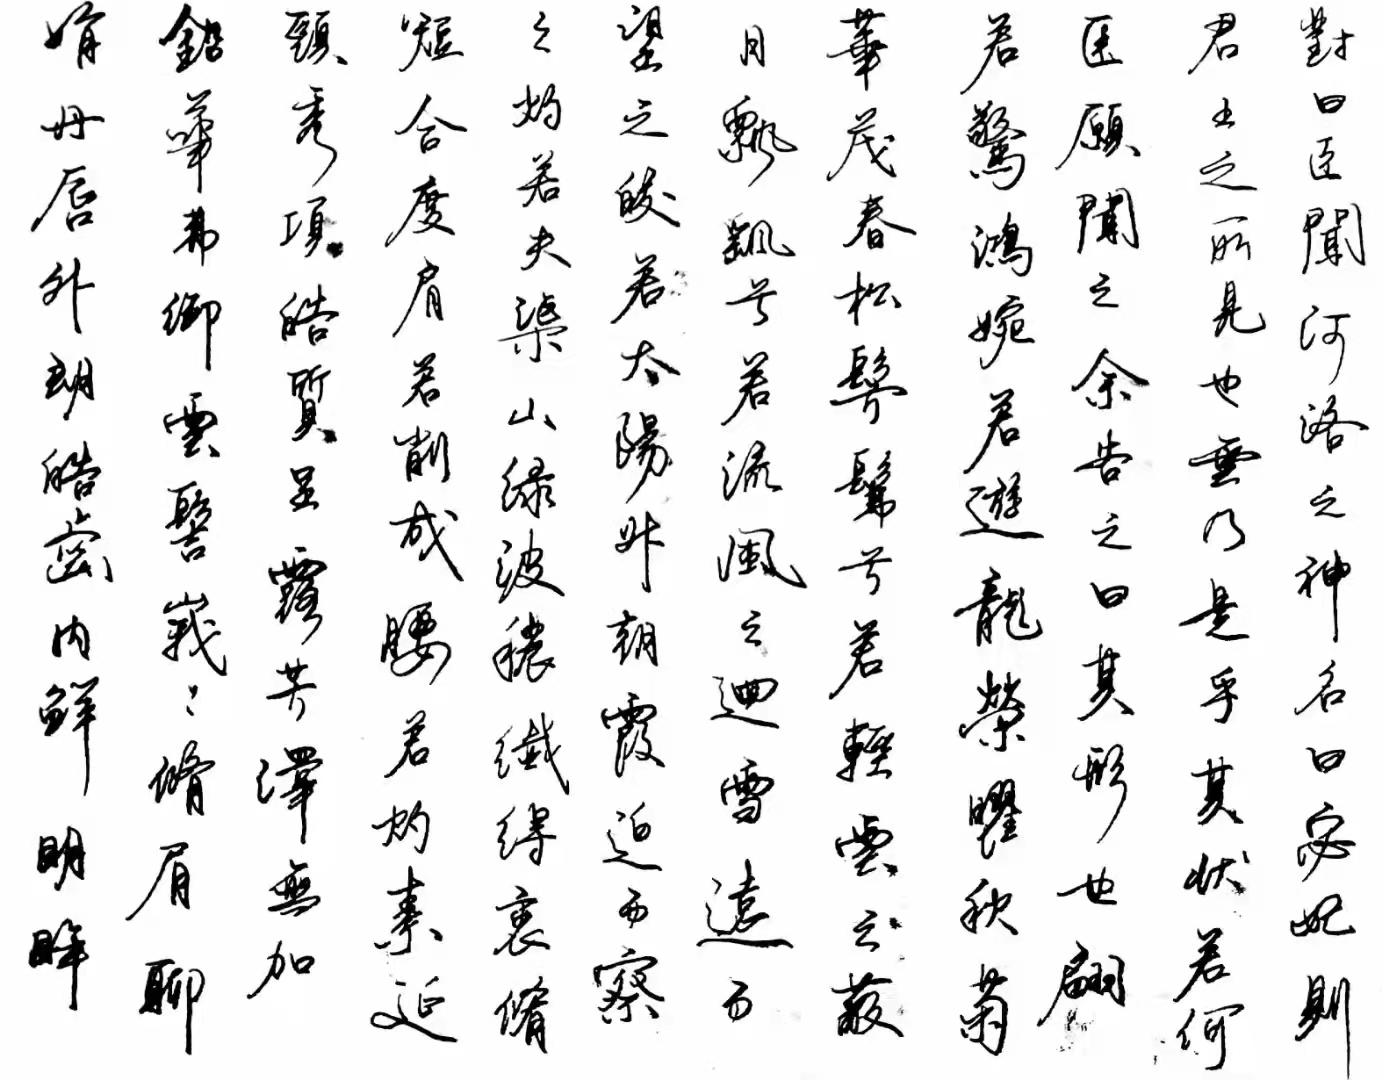 對曰臣聞河洛之神名曰宓妃則
君王之所見也無乃是乎其狀若何
臣願聞之余告之曰其形也翩
若驚鴻婉若遊龍榮曜秋菊
華茂春松髣髴兮若輕雲之蔽
月飄颻兮若流風之迴雪遠而
望之皎若太陽升朝霞迫而察
之灼若夫渠出緑波穠纖得衷脩
短合度肩若削成腰若約素延
頸秀項皓質呈露芳澤無加
鉛華弗御雲髻峩々脩眉聯
娟丹唇外朗皓齒内鮮明眸